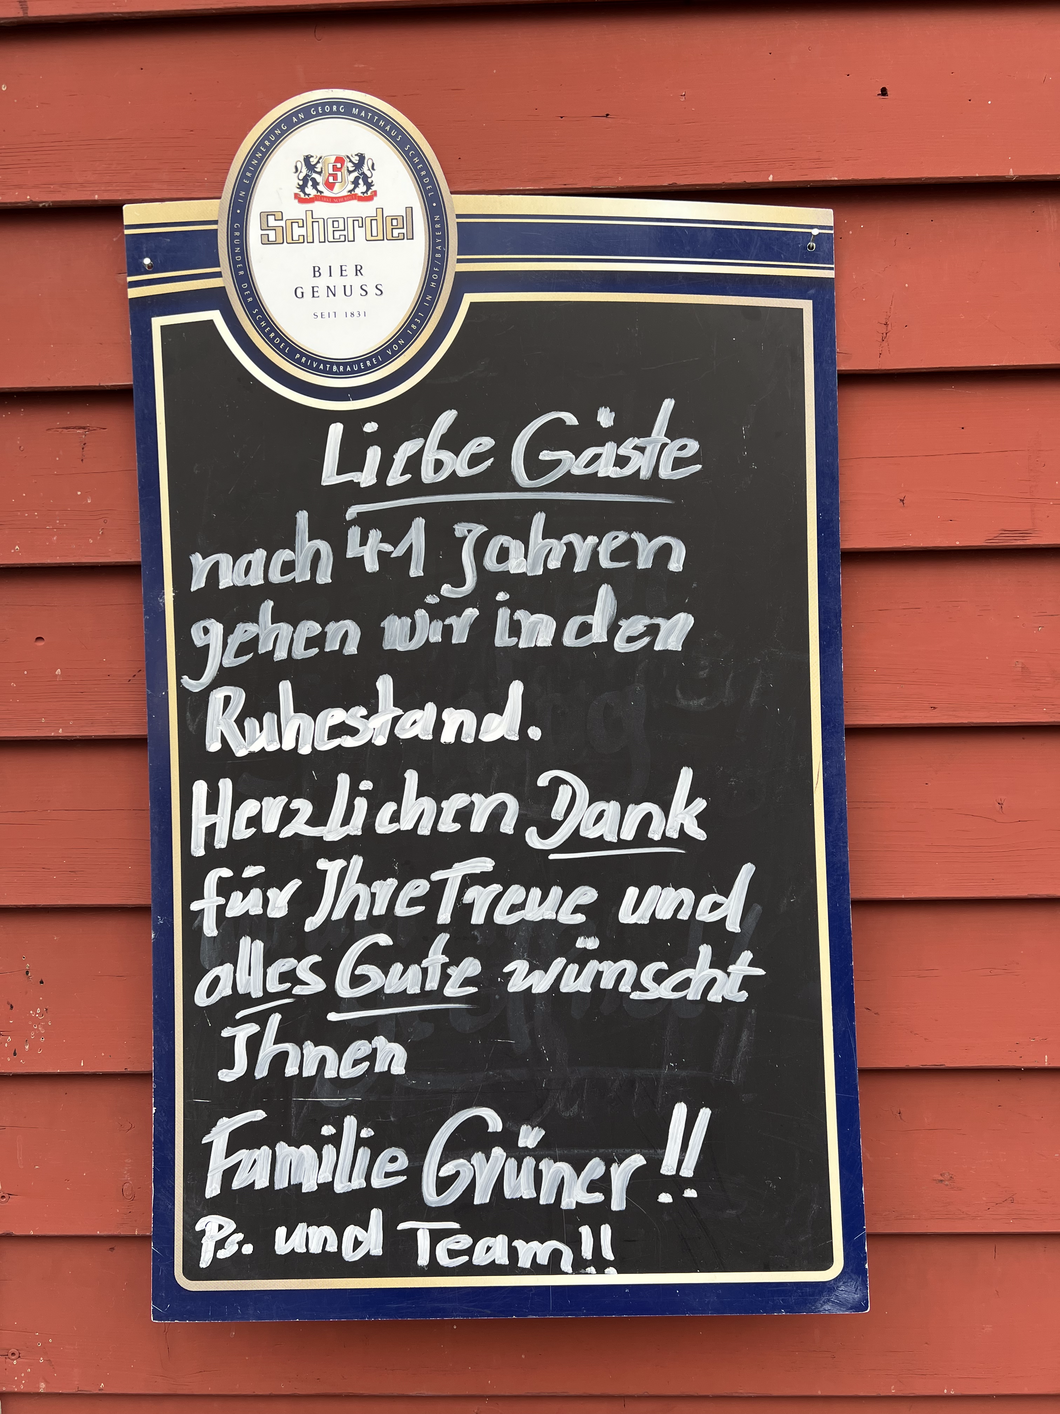 IN ERINNERUNG AN GEORG MATTHÄUS SCHERDEL • GRÜNDER DER SCHERDEL PRIVATBRAUEREI VON 1831 IN HOF/BAYERN •
S
Scherdel
BIER
GENUSS
SEIT 1831
Liebe Gäste
nach 41 Jahren
gehen wir in den
Ruhestand.
Herzlichen Dank
für Ihre Treue und
alles Gute wünscht
Ihnen
Familie Grüner!!
Ps. und Team!!